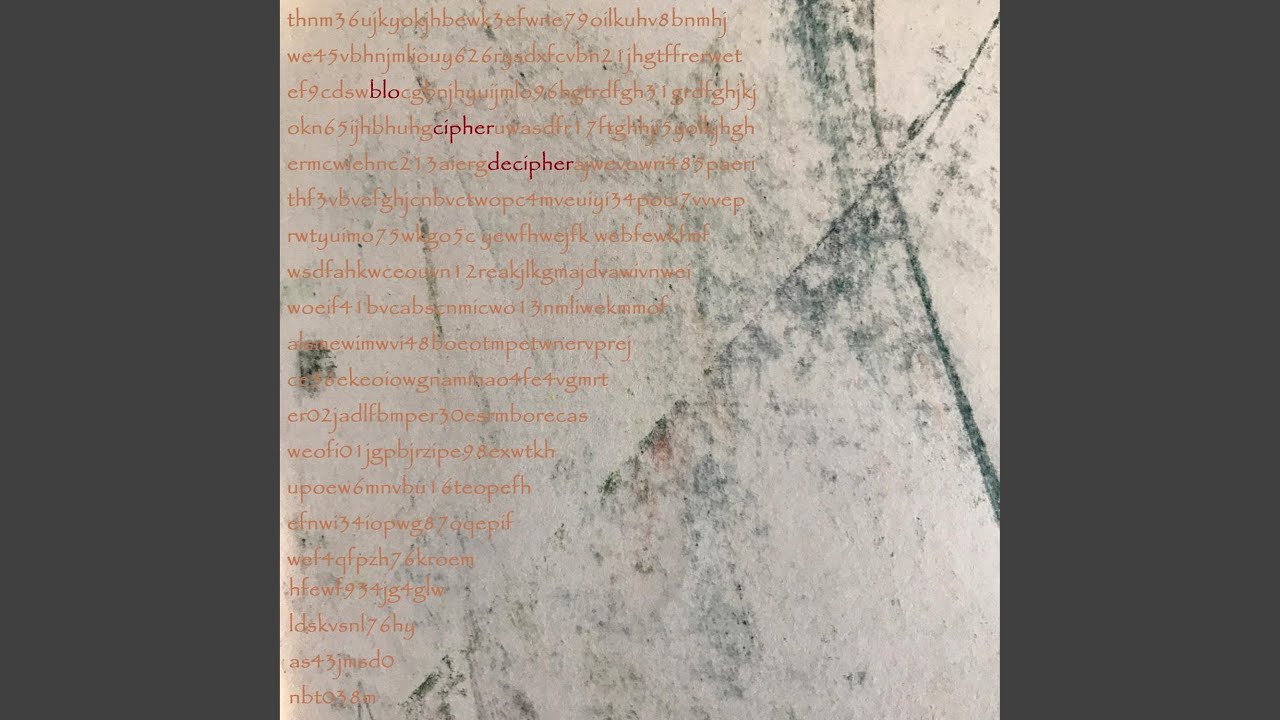 thnm36ujkyokjhbewk3efwne79oilkuhv8bnmhj
we45vbhnjmkiouy626rysdxfcvbn21jhgtffrerwet
ef9cdswblocgbnjhyuijmlo96hgtrdfgh31grdfghjkj
okn65ijhbhuhgcipheruwasdfr17ftghhji5yolkjhgh
ermcwiehnc213aiergdecipherajwevowri485paeri
thf3vbvefghjcnbvctwopc4mveuiyi34pooi7vvvep
rwtyuimo75wkgo5c yewfhwejfk webfewkfmf
wsdfahkwceouvn12reakjlkgmajdvawivnwei
woeif41bvcabscnmicwo13nmliwekmmof
alsmewimwvi48boeotmpetwnervprej
ce46ekeoiowgnammao4fe4vgmrt
er02jadlfbmper30esrmborecas
weofi01jgpbjrzipe98exwtkh
upoew6mnvbu16teopefh
efnwi34iopwg87qqepif
wef4qfpzh76kroem
hfewf934jg4glw
ldskvsnl76hy
as43jmsd0
nbt038m